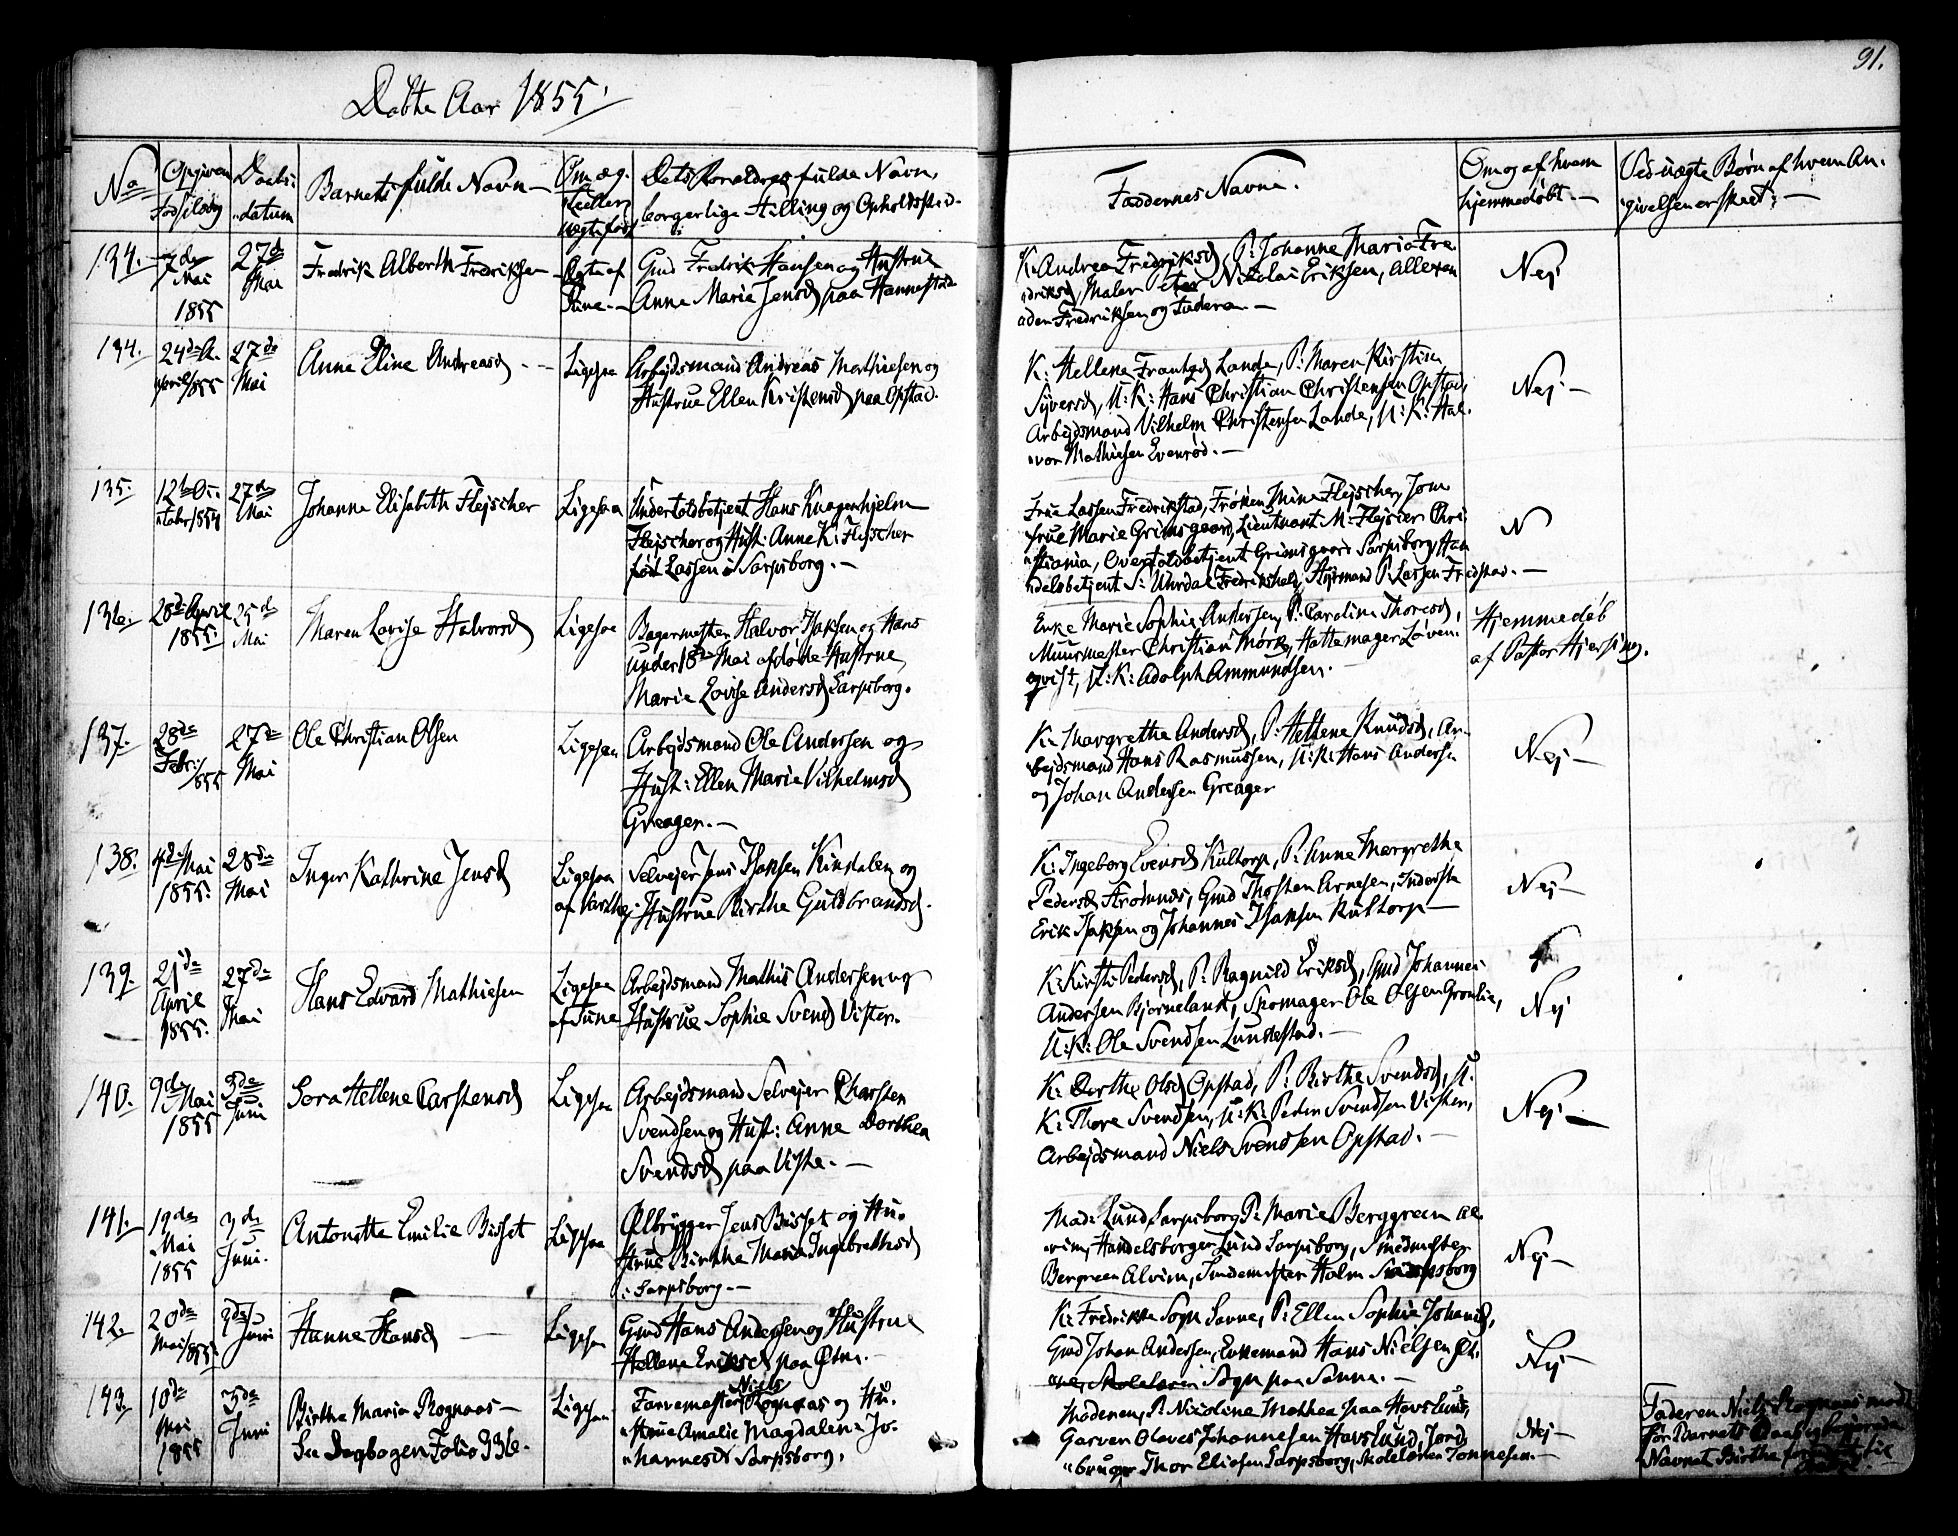 91.
Døbte Aar 1855.
No
Opgiven Fødselsdag
Daabs- datum
Barnets fulde Navn
Om æg- te eller uægte født
Dets Forældres fulde Navn, borgerlige Stilling og Opholdssted.
Faddernes Navne.
Om og af hvem hjemmedøbt.
Ved uægte Børn af hvem An- givelsen er skeet.
134.
7de Mai 1855
27de Mai
Fredrik Alberth Fredriksen
Ægte af Tune.
Gmd Fredrik Hansen og Hustrue
Anne Marie Jensd paa Hannestad
K. Andrea Fredriksd, P. Johanne Maria Fre-
driksd, Maler Peter Nikolai Eriksen,
Fredriksen og Faderen.
Nej
134.
24de A- pril/855
27de Mai
Anne Eline Andreasd
Ligesaa
Arbejdsmand Andreas Mathiesen og
Hustrue Ellen Kristensd paa Opstad.
K: Hellene Lande, P: Maren Kirstine
Syversd, U: K: Hans Christian Christensen Opstad,
Arbejdsmand Vilhelm Christensen Lande, U: K: Hal-
vor Mathiesen Evenrød.
Nej
135.
27de Mai
Johanna Elisabeth Flejscher
Ligesaa
Undertolbetjent Hans Knagenhjelm
Flejscher og Hust: Anne K: Flejscher
født Lassen i Sarpsborg.
Frue Lassen Fredrikstad, Frøken Mina Flejscher, Jom-
frue Marie Grimsgaard, Lieutnant M: Flejscer Chri-
stiania, Overtoldbetjent Grimsgaard Sarpsborg, Han-
delsbetjent S: Fredrikshald, Styrmand P. Lassen Fredstad.
N
136.
28de April 1855.
25de Mai
Maren Lovise Halvorsd
Ligesaa
Bagermester Halvor Isaksen og Hans
under 18de Mai afdøde Hustrue
Marie Lovise Andersd Sarpsborg.
Enke Marie Sophie Andersen, P: Caroline Thoresd,
Muurmester Christian Mørk, Hattemager Løven-
qvist, U: K: Adolph Ammundsen.
Hjemmedøb
af Pastor Hjersing.
137.
28de Febr:/855
27de Mai
Ole Christian Olsen
Ligesaa
Arbejdsmand Ole Andersen og
Hust: Ellen Marie Vilhelmsd
Greager.
K: Margrethe Andersd, P: Hellene Knudsd, Ar-
bejdsmand Hans Rasmussen, U: K: Hans Andersen
og Johan Andersen Greager
Nej
138.
4de Mai 1855.
28de Mai
Inger Kathrine Jensd
Ligesaa
af Varteig
Selvejer Jens Isaksen Kindalen og
Hustrue Birthe Guldbrandsd.
K: Ingeborg Evensd Kultorp, P: Anne Margrethe
Pedersd Strømnes, Gmd Thosten Arnesen, Inderste
Erik Isaksen og Johannes Isaksen Kultorp
Nej
139.
21de April 1855.
27de Mai
Hans Edvard Mathiesen
Ligesaa
af Tune
Arbejdsmand Mathis Andersen og
Hustrue Sophie Svensd Visten.
K: Kirsti Pedersd, P: Ragnild Eriksd, Gmd Johannes
Andersen Bjørneland, Skomager Ole Olsen Gronlie,
U: K: Ole Svendsen Lundestad.
Nej
140.
9de Mai 1855
3de Juni
Sora Hellene Carstensd
Ligesaa
Arbejdsmand Selvejer Charsten
Svendsen og Hust: Anne Dorthea
Svendsd paa Viste.
K: Dorthe Olsd Opstad, P: Birthe Svendsd, U.
K: Thore Svendsen, U: K: Peder Svendsen Visten,
Arbejdsmand Niels Svendsen Opstad.
Nej
141.
12de Mai 1855
3de Juni.
Antonette Emilie Bisset
Ligesaa
Ølbrygger Jens Bisset og Hu-
strue Birthe Maria Ingebrethsd
i Sarpsborg.
Mad: Lund Sarpsborg P: Marie Berggreen Al-
vim, Handelsborger Lund Sarpsborg, Smedmester
Bergreen Alvim, Holm Sarpsborg
Nej
142.
20de Mai/855
3de Juni
Hanne Hansd
Ligesaa
Gmd Hans Andersen og Hustrue
Hellene Eriksd paa Øtne.
K: Fredrikke Sogn Sanne, P: Ellen Sophie Johansd,
Gmd Johan Andersen, Enkemand Hans Nielsen Øt-
ne, Skolelærer Sogn paa Sanne.
Nej
143.
10de Mai 1855
3de Juni
Birthe Maria Rognaas
Se Dagbogen Folio 336.
Ligesaa
Farvemester Niels Rognaas og Hu-
strue Amalie Magdalene Jo-
hannesd Sarpsborg.
Moderen, P. Nicoline Mathea paa Havslund,
Garver Olaves Johannesen Havslund, Jord-
bruger Thor Eliasen Sarpsborg, Skolelærer Tønnesen.
Nej
Faderen Niels Rognaas
for Barnets Daab
Navnet Birthe